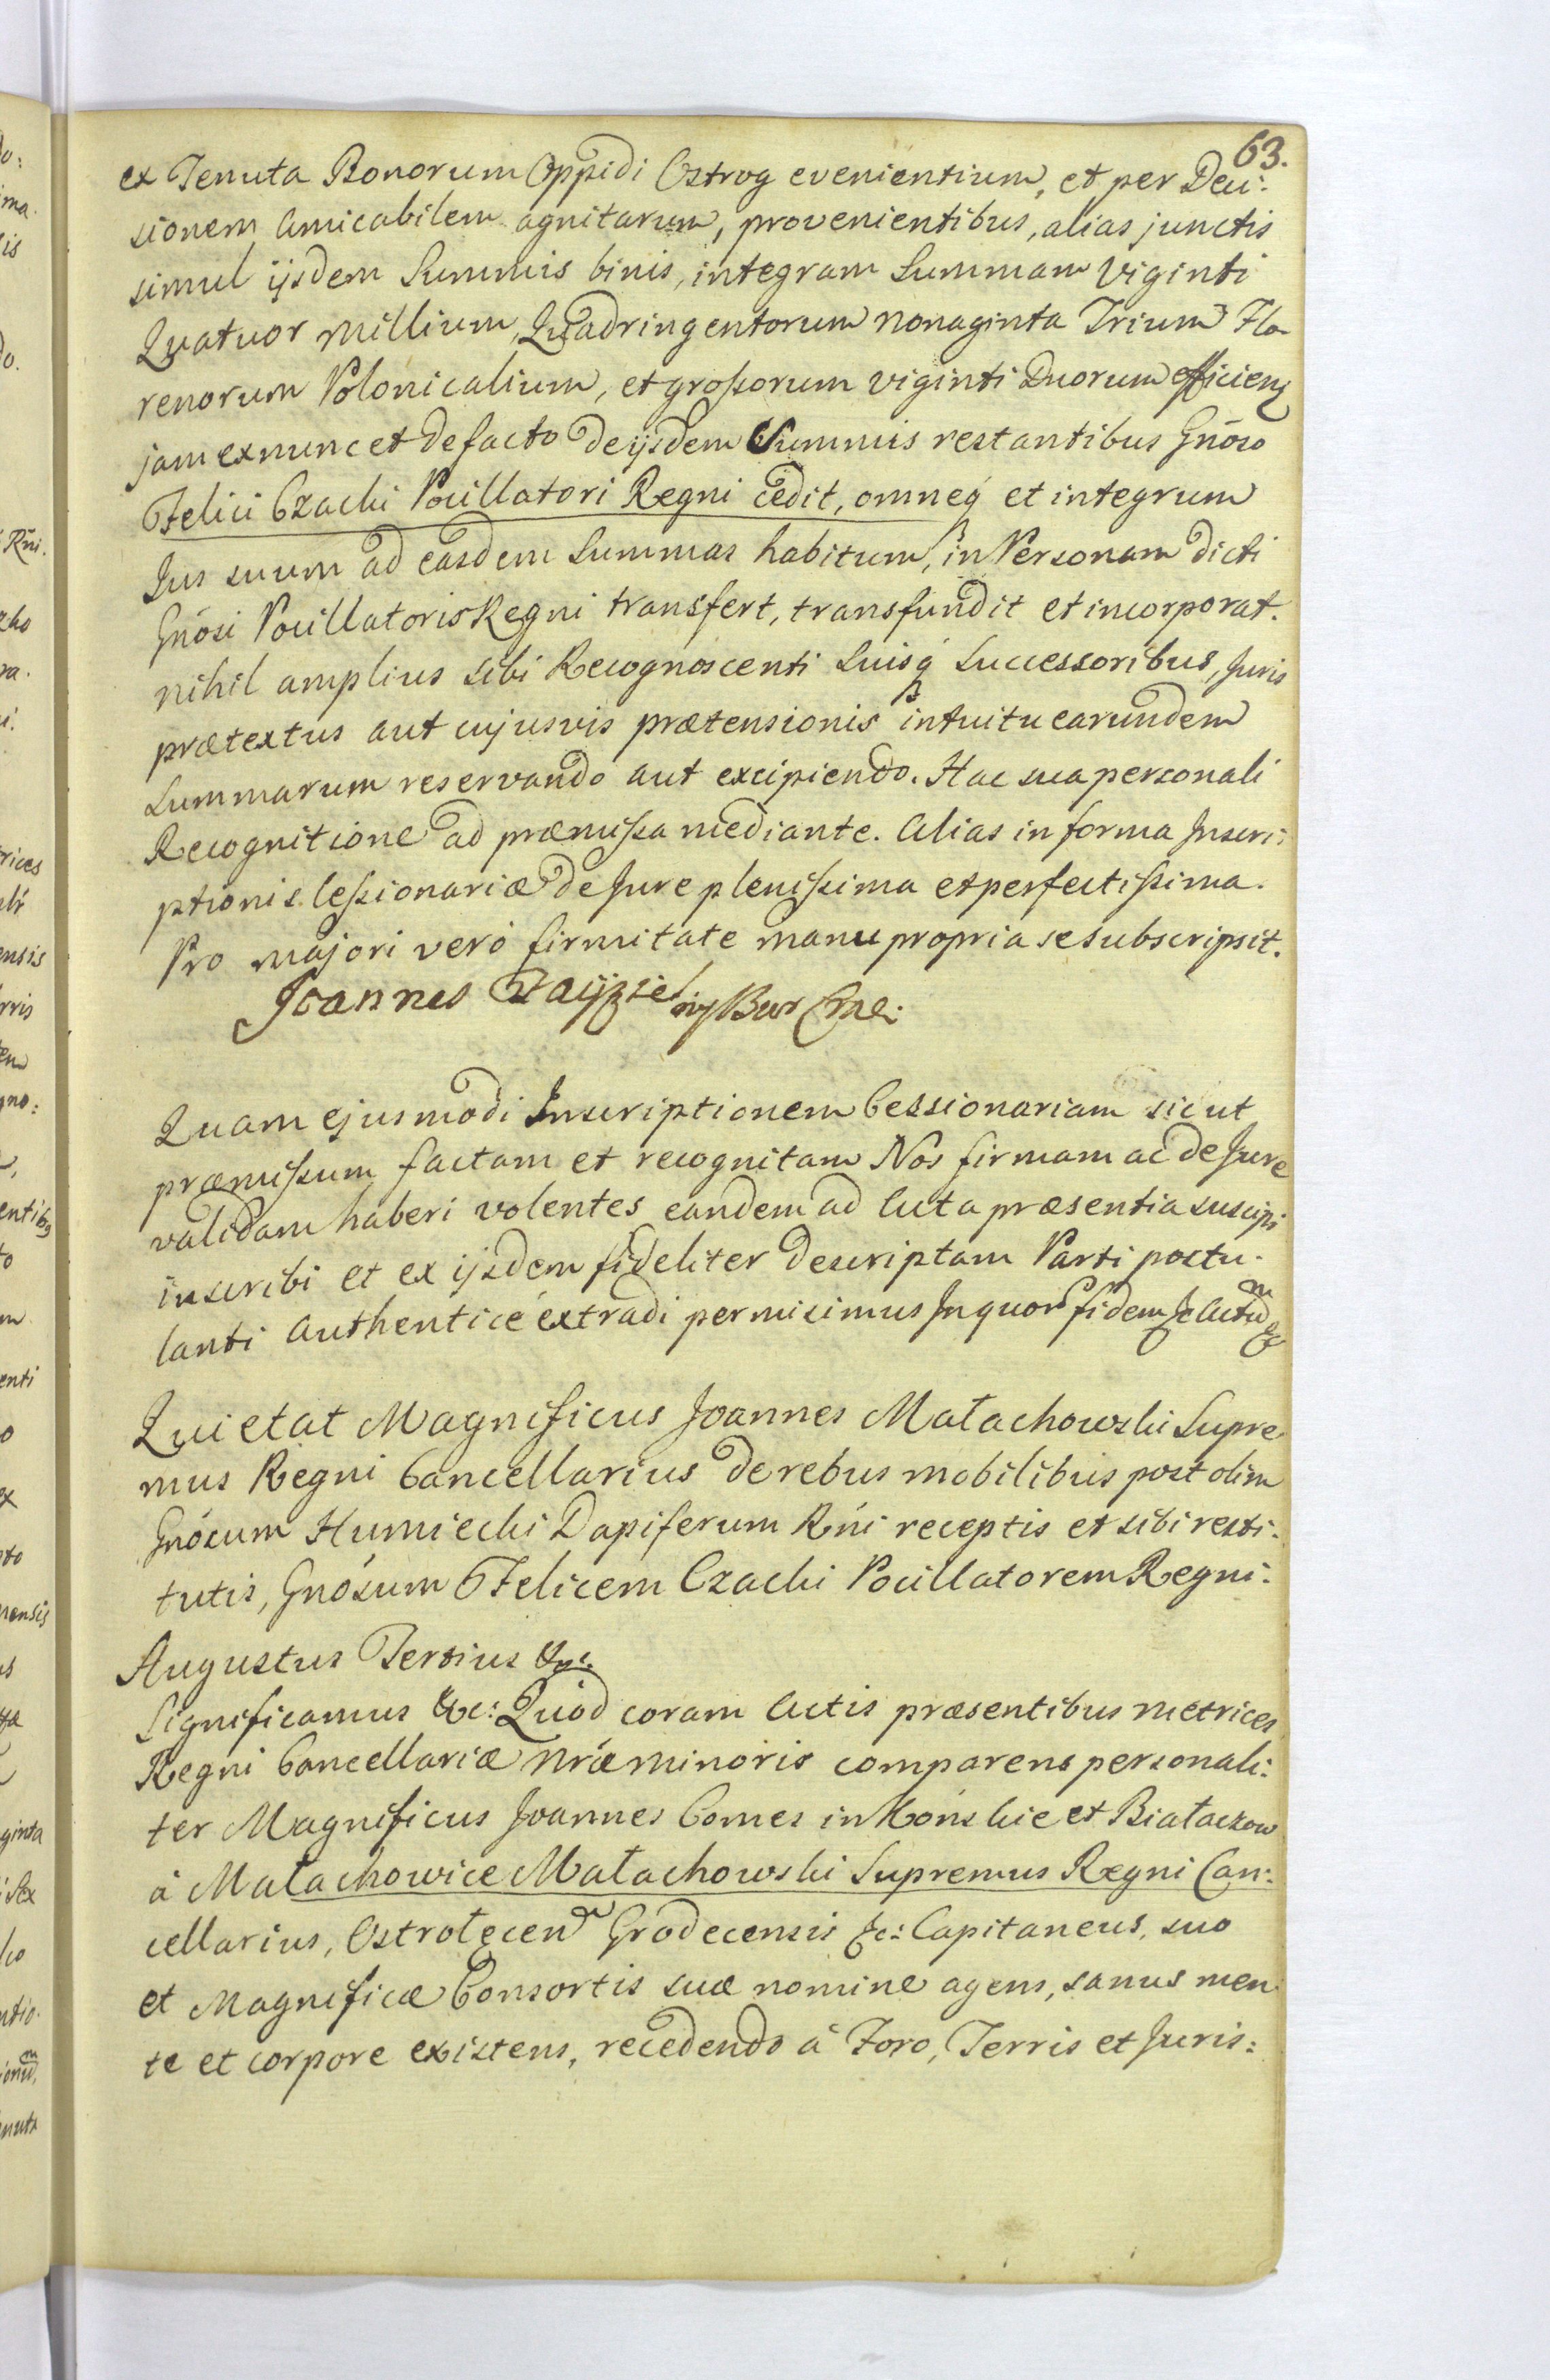 63.
ex Tenuta Bonorum Oppidi Ostrog evenientium, et per Deci:
sionem Amicabilem agnitarum, provenientibus, alias junctis
simul ijsdem Summis binis, integram Summam Viginti
Quatuor Millium, Quadringentorum Nonaginta Trium Flo
renorum Polonicalium, et grossorum viginti Duorum efficien
jam ex nunc et de facto de ijsdem Summis restantibus Gnõso
Felici Czacki Pocillatori Regni cedit, omneq et integrum
Jus suum ad easdem Summas habitum, in Personam dicti
Gnõsi Pocillatoris Regni transfert, transfundit et incorporat.
nihil amplius sibi Recognoscenti Suisq Successoribus, Juris
prætextus aut cujusvis prætensionis intuitu earundem
Summarum reservando aut excipiendo. Hac sua personali
Recognitione ad præmissa mediante. Alias in forma Inscri:
ptionis Cessionariæ de Jure plenissima et perfectissima.
Pro majori verò firmitate manu propria se subscripsit.
Joannes
Quam ejusmodi Inscriptionem Cessionariam sicut
præmissum factam et recognitam Nos firmam ac de Jure
validam haberi volentes eandem ad Acta præsentia suscipi
inscribi et ex ijsdem fideliter descriptam Parti postu:
lanti Authenticè extradi permisimus In quor fidem &c Actum &c
Quietat Magnificus Joannes Małachowski Supre
mus Regni Cancellarius de rebus mobilibus post olim
Gnõsum Humiecki Dapiferum Rńi receptis et sibi resti:
tutis, Gnõsum Felicem Czacki Pocillatorem Regni.
Augustus Tertius &c.
Significamus &c: Quod coram Actis præsentibus Metrices
Regni Cancellariæ Nræ Minoris comparens personali:
ter Magnificus Joannes Comes in Końskie et Białaczow
à Małachowice Małachowski Supremus Regni Can:
cellarius, Ostrołęcen Grodecensis &c: Capitaneus, suo
et Magnificæ Consortis suæ nomine agens, sanus men
te et corpore existens, recedendo à Foro, Terris et Juris: